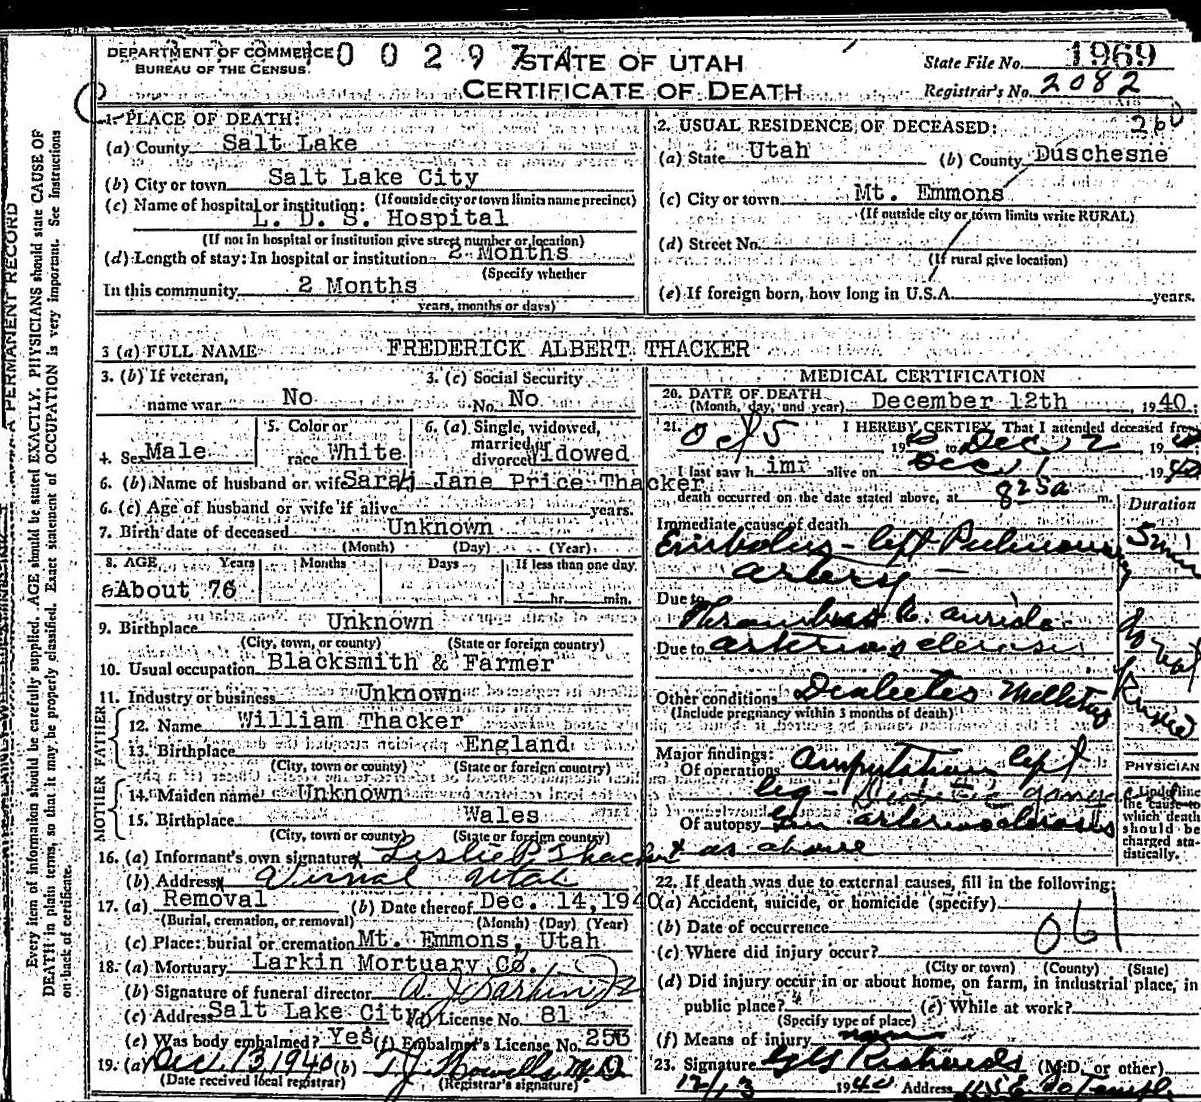 DEPARTMENT OF COMMERCE
BUREAU OF THE CENSUS
0 0 2 9 7
STATE OF UTAH
CERTIFICATE OF DEATH
State File No. 1969
Registrar's No. 2082
260
1. PLACE OF DEATH:
(a) County Salt Lake
(b) City or town Salt Lake City
(If outside city or town limits name precinct)
(c) Name of hospital or institution:
L. D. S. Hospital
(If not in hospital or institution give street number or location)
(d) Length of stay: In hospital or institution 2 Months
(Specify whether
In this community 2 Months
years, months or days)
2. USUAL RESIDENCE OF DECEASED:
(a) State Utah (b) County Duschesne
(c) City or town Mt. Emmons
(If outside city or town limits write RURAL)
(d) Street No.
(If rural give location)
(e) If foreign born, how long in U.S.A. years.
3 (a) FULL NAME FREDERICK ALBERT THACKER
3. (b) If veteran, name war No
3. (c) Social Security No. No
4. Sex Male
5. Color or race White
6. (a) Single, widowed, married, or divorced Widowed
6. (b) Name of husband or wife Sarah Jane Price Thacker
6. (c) Age of husband or wife if alive years.
7. Birth date of deceased Unknown
(Month) (Day) (Year)
8. AGE Years Months Days If less than one day
About 76 hr. min.
9. Birthplace Unknown
(City, town, or county) (State or foreign country)
10. Usual occupation Blacksmith & Farmer
11. Industry or business Unknown
FATHER
12. Name William Thacker
13. Birthplace England
(City, town or county) (State or foreign country)
MOTHER
14. Maiden name Unknown
15. Birthplace Wales
(City, town or county) (State or foreign country)
16. (a) Informant's own signature Leslie P. Thacker
(b) Address Vernal Utah
17. (a) Removal (b) Date thereof Dec. 14, 1940
(Burial, cremation, or removal) (Month) (Day) (Year)
(c) Place: burial or cremation Mt. Emmons, Utah
18. (a) Mortuary Larkin Mortuary Co.
(b) Signature of funeral director A. J. Larkin
(c) Address Salt Lake City (d) License No. 81
(e) Was body embalmed? Yes (f) Embalmer's License No.
19. (a) Dec. 13 1940 (b) T. J. Howells M.D.
(Date received local registrar) (Registrar's signature)
MEDICAL CERTIFICATION
20. DATE OF DEATH
(Month, day, and year) December 12th, 1940.
21. I HEREBY CERTIFY, That I attended deceased from
Oct 5 1940 to Dec 12, 1940
I last saw h im alive on Dec 11 1940
death occurred on the date stated above, at 825a m.
Duration
Immediate cause of death
Embolus - left Pulmonary 5 min
artery
Due to Thrombus R. auricle
Due to arteriosclerosis
Other conditions Diabetes Mellitus
(Include pregnancy within 3 months of death)
Major findings:
Of operations Amputation left
leg - Diabetic gangrene
Of autopsy Gen arteriosclerosis
as above
PHYSICIAN
Underline the cause to which death should be charged statistically.
22. If death was due to external causes, fill in the following:
(a) Accident, suicide, or homicide (specify)
(b) Date of occurrence
061
(c) Where did injury occur?
(City or town) (County) (State)
(d) Did injury occur in or about home, on farm, in industrial place, in
public place? (e) While at work?
(Specify type of place)
(f) Means of injury
23. Signature G G Richards (M.D. or other)
12/13 1940 Address 115 E So Temple
A PERMANENT RECORD
Every item of information should be carefully supplied. AGE should be stated EXACTLY. PHYSICIANS should state CAUSE OF
DEATH in plain terms, so that it may be properly classified. Exact statement of OCCUPATION is very important. See instructions
on back of certificate.